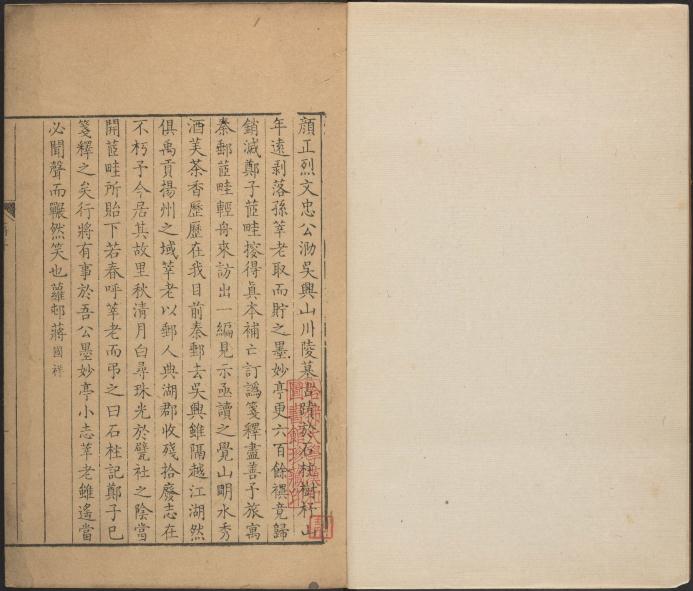 顏正烈文忠公泐吳興山川陵墓古蹟於石柱樹杼山
年遠剥落孫莘老取而貯之墨妙亭更六百餘禩竟歸
銷滅鄭子芷畦搜得眞本補亡訂譌箋釋盡善予旅寓
秦郵芷畦輕舟來訪出一編見示亟讀之覺山明水秀
酒芙茶香歷歷在我目前秦郵去吳興雖隔越江湖然
俱禹貢揚州之域莘老以郵人典湖郡收殘拾廢志在
不朽予今居其故里秋清月白尋珠光於甓社之陰當
開芷畦所貽下若春呼莘老而弔之曰石柱記鄭子已
箋釋之矣行將有事於吾公墨妙亭小志莘老雖遙當
必聞聲而囅然笑也蘿邨蔣國祥
圖書館珍藏印